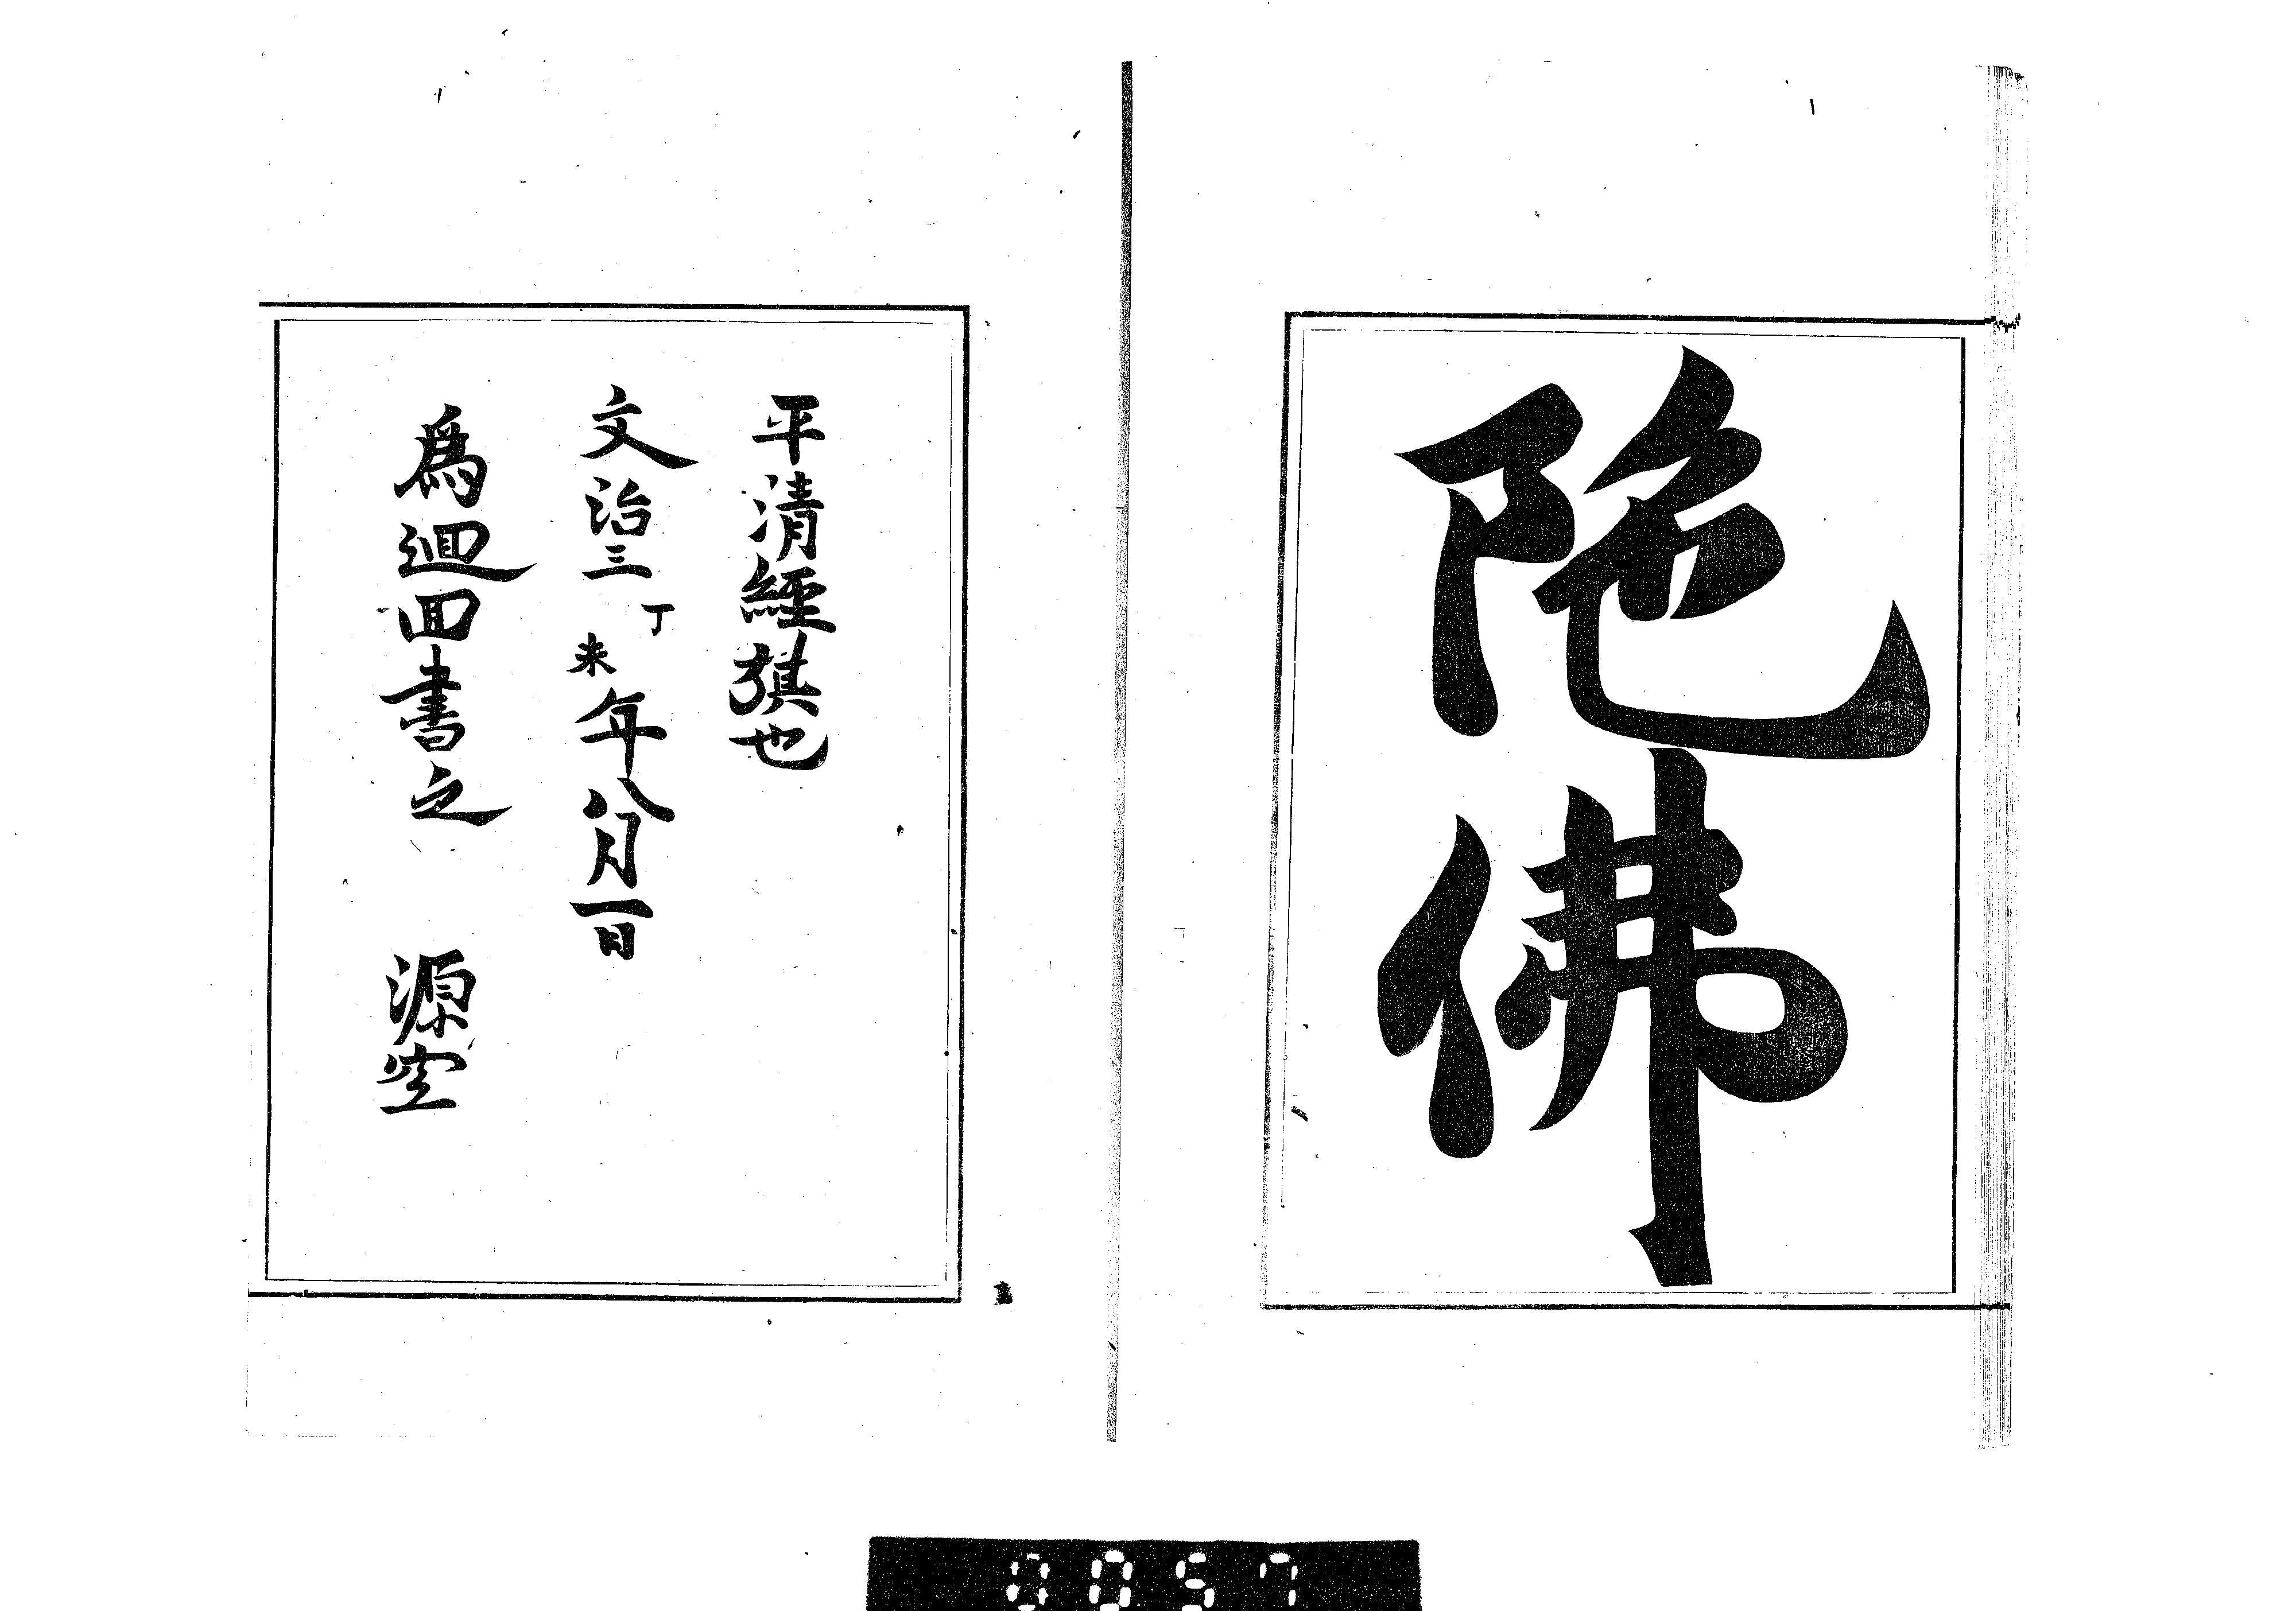 陁佛
平清經猉也
文治三丁未年八月一日
爲迴回書之 源空
0057